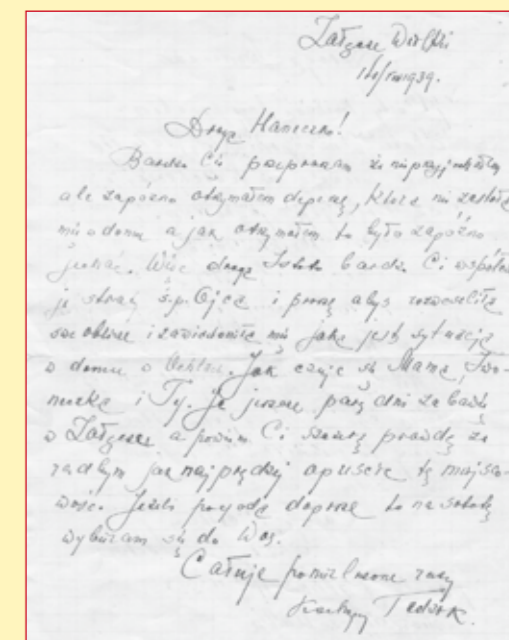 Załęcze Wielkie
1939.
Droga Haneczko!
Bardzo Cię przepraszam że nie przyjechałem
ale zapóźno otrzymałem depeszę, która nie zastała
mię w domu a jak otrzymałem to było zapóźno
jechać. Więc droga bardzo Ci współczu
ję straty ś.p. Ojca i proszę abyś
i zawiadomiła mię jaka jest sytuacja
w domu. Jak czuje się Mama,
i Ty. Ja jeszcze parę dni zabawię
w Załęczu a powiem Ci szczerą prawdę że
radbym jaknajprędzej opuścić tę miejsco-
wość. Jeżeli pogoda dopisze to na sobotę
wybieram się do Was.
Całuję pomilione razy
Kochający Tadzik.